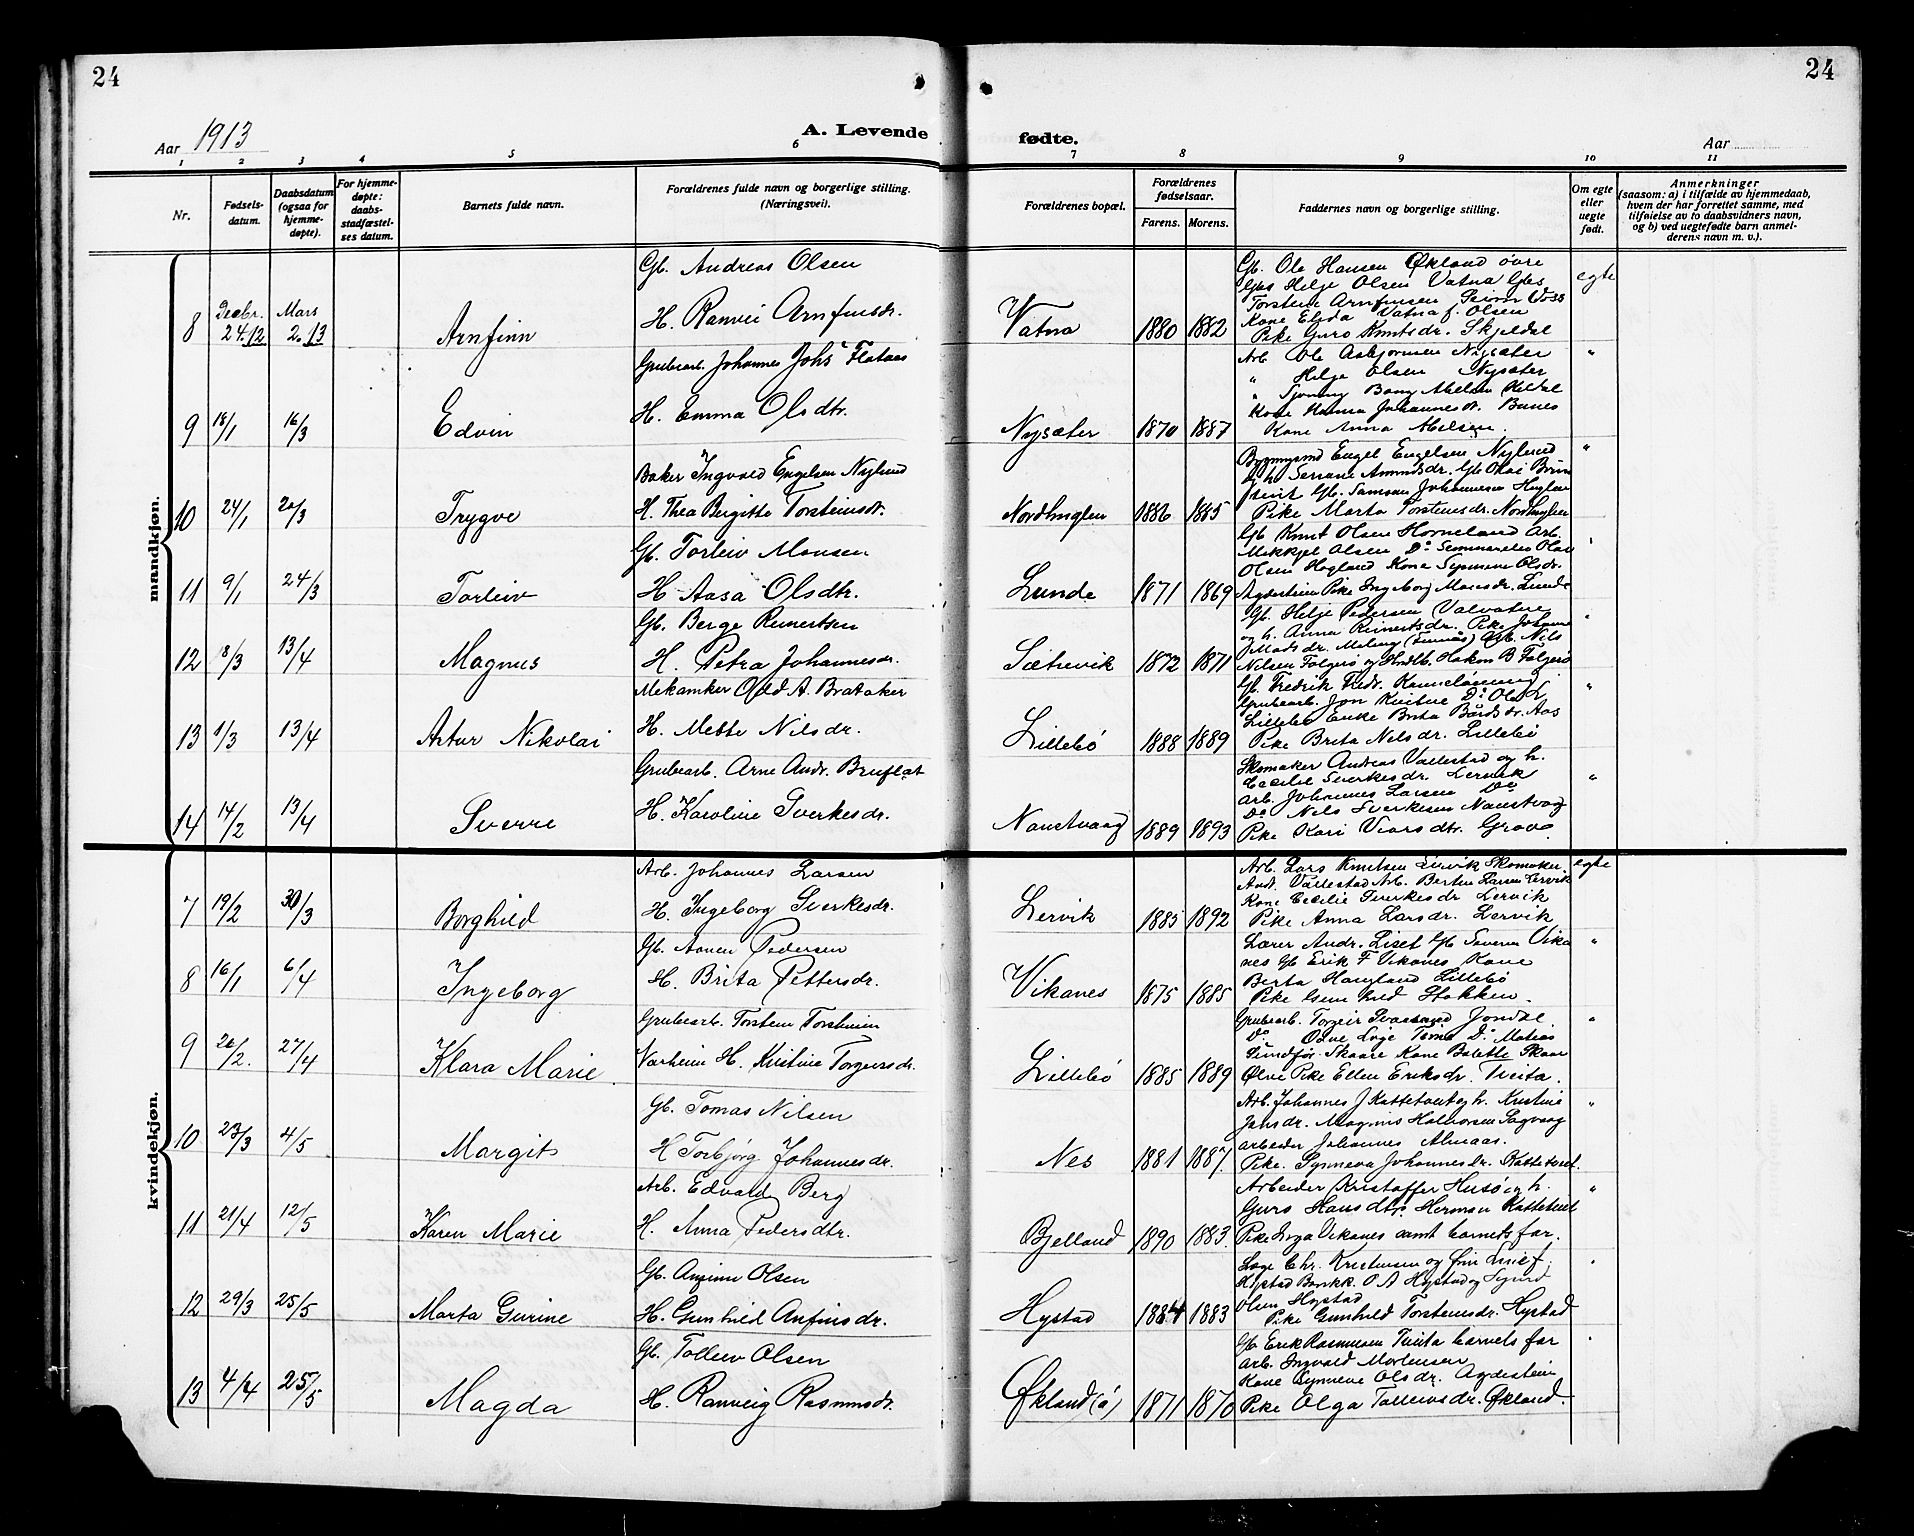 24
24
Aar 1913
A. Levende
fødte.
Aar
1 2 3 4 5 6 7 8 9 10 11
Nr.
Fødsels-
datum.
Daabsdatum
(ogsaa for
hjemme-
døpte).
For hjemme-
døpte:
daabs-
stadfæstel-
ses datum.
Barnets fulde navn.
Forældrenes fulde navn og borgerlige stilling.
(Næringsvei).
Forældrenes bopæl.
Forældrenes
fødselsaar.
Farens. Morens.
Faddernes navn og borgerlige stilling.
Om egte
eller
uegte
født.
Anmerkninger
(saasom: a) i tilfælde av hjemmedaab,
hvem der har forrettet samme, med
tilføielse av to daabsvidners navn,
og b) ved uegtefødte barn anmel-
derens navn m. v.).
mandkjøn.
8 Decbr. 24.12 Mars 2.13 Arnfinn
Gb. Andreas Olsen
H. Ranvei Arnfinsdr.
Vatna 1880 1882
Gb. Ole Hansen Økland övre
Gbs Helje Olsen Vatna Gbs
Torstein Arnfinsen Seim Voss
Kone Elida Vatna f. Olsen
Pike Guro Knutsdr. Skjeldal
egte
9 18/1 16/3 Edvin
Grubearb. Johannes Johs Flataas
H. Emma Olsdtr.
Nysæter 1870 1887
Arb. Ole Asbjørnsen Nysæter
" Helje Olsen Nysæter
Kone Hanna Johannesdr. Bunes
Kone Anna Abelsen.
"
10 24/1 20/3 Trygve
Baker Ingvald Engelsen Nylund
H. Thea Birgitte Torsteinsdr.
Nordhuglen 1886 1885
Engel Engelsen Nylund
Gb. Samson Johannesen Huglen
Pike Marta Torsteinsdr. Nordhuglen
"
11 9/1 24/3 Torleiv
Gb. Torleiv Monsen
H. Aasa Olsdtr.
Lunde 1871 1869
Gb Knut Olsen Horneland Arb.
Mikkjel Olsen Do Seminarelev Olav
Olsen Hogland Kone Synneve Olsdr.
Agdestein Pike Ingeborg Monsdr. Lunde
12 8/3 13/4 Magnus
Gb. Berge Reinertsen
H. Petra Johannesdr.
Sætrevik 1872 1871
Gb. Helje Pedersen Valvatne
og h. Anna Reinertsdr. Pike Johanne
Madsdr. Meling (Finnås) Arb. Nils
Nilsen Folgerø og Hndlb. Hakon B Folgerø
"
13 1/3 13/4 Artur Nikolai
Mekaniker Odd A. Brataker
H. Mette Nilsdr.
Lillebö 1888 1889
Gb. Fredrik Fredr. Kannelönning
Lillebö Enke Brita Bårdsdr. Aas
Pike Brita Nilsdr. Lillebö
"
14 14/2 13/4 Sverre
Grubearb. Arne Andr. Bruflat
H. Karoline Sverkesdr.
Naustvaag 1889 1893
Skomaker Andreas Vallestad og h.
Cecilie Sverkesdr. Lervik
Arb. Johannes Larsen Do
Do Nils Sverkesen Naustvaag
Pike Kari Viarsdtr. Grov
"
kvindekjøn.
7 19/2 30/3 Borghild
Arb. Johannes Larsen
H. Ingeborg Sverkesdr.
Lervik 1885 1892
Arb. Lars Knutsen Lervik Skomaker
Andr. Vallestad Arb. Bertin Larsen Lervik
Kone Cecilie Sverkesdr Lervik
Pike Anna Larsdr. Lervik
egte
8 16/1 6/4 Ingeborg
Gb. Aanen Pedersen
H. Brita Pettersdr.
Vikanes 1875 1885
Lærer Andr. Liset Gb Severin Vika
nes Gb Erik F Vikanes Kone
Berta Haugland Lillebö
Pike Gunhild Stokken.
"
9 20/2. 27/4 Klara Marie
Grubearb. Torstein Torsteinsen
Varheim H. Kristine Torgeirsdr.
Lillebö 1885 1889
Grubearb. Torgeir Svaasand Jondal.
Sundför Skaare Kone Bolette Skaar
Ølve Pike Ellen Eriksdr. Tveita.
"
10 23/3 4/5 Margit
Gb. Tomas Nilsen
H Torbjørg Johannesdr.
Nes 1881 1887.
Arb. Johannes J Kattetveit og h. Kristine
Jensdr. Magnus Halvorsen Sagvaag
arbeider Johannes Almaas.
Pike. Synneva Johannesdr. Kattetveit.
"
11 21/4 12/5 Karen Marie
Arb. Edvald Berg
H. Anna Pedersdtr.
Bjelland 1890 1883.
Arbeider Kristoffer Husö og h.
Guro Hansdtr. Herman Kattetveit
Pike Inga Vikanes samt barnets far.
"
12 29/3 25/5 Marta Gurine
Gb. Anfinn Olsen
H. Gunhild Anfinsdr.
Hystad 1884 1883
Læge Chr. Kristensen og frue
Hystad Bankk. O A Hystad og Sigurd
Olsen Hystad
Pike Gunhild Torsteinsdr. Hystad
13 4/4 25/5 Magda
Gb. Tolleiv Olsen
H. Ranveig Rasmusdr.
Økland (ö) 1871 1870
Gb Erik Rasmussen Tveita barnets far
Arb. Ingvald Mortensen
Kone Synneve Olsdr. Agdestein
Pike Olga Tolleivsdr. Økland.